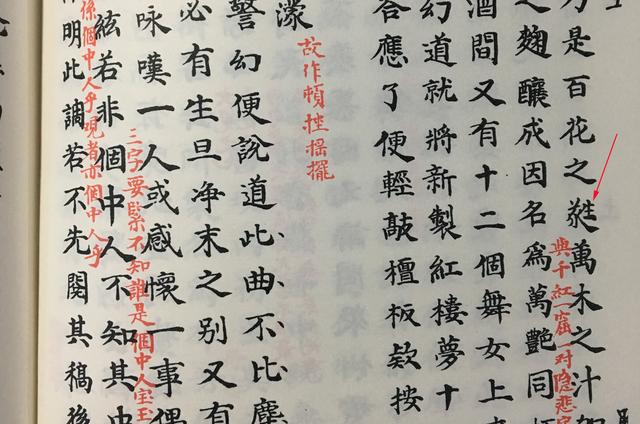 是百花之㽔萬木之汁加
與千紅一窟一对隐悲字
之麯釀成因名爲萬艷同
酒間又有十二個舞女上
幻道就將新製紅樓夢十
答應了便輕敲檀板欵按
故作頓挫摇擺
濛
警幻便說道此曲不比塵
必有生旦净末之别又有
咏嘆一人或感懷一事偶
三字要緊不知誰是個中人宝玉
絃若非個中人不知其中
係個中人乎观者亦個中人乎
明此調若不先閱其稿後